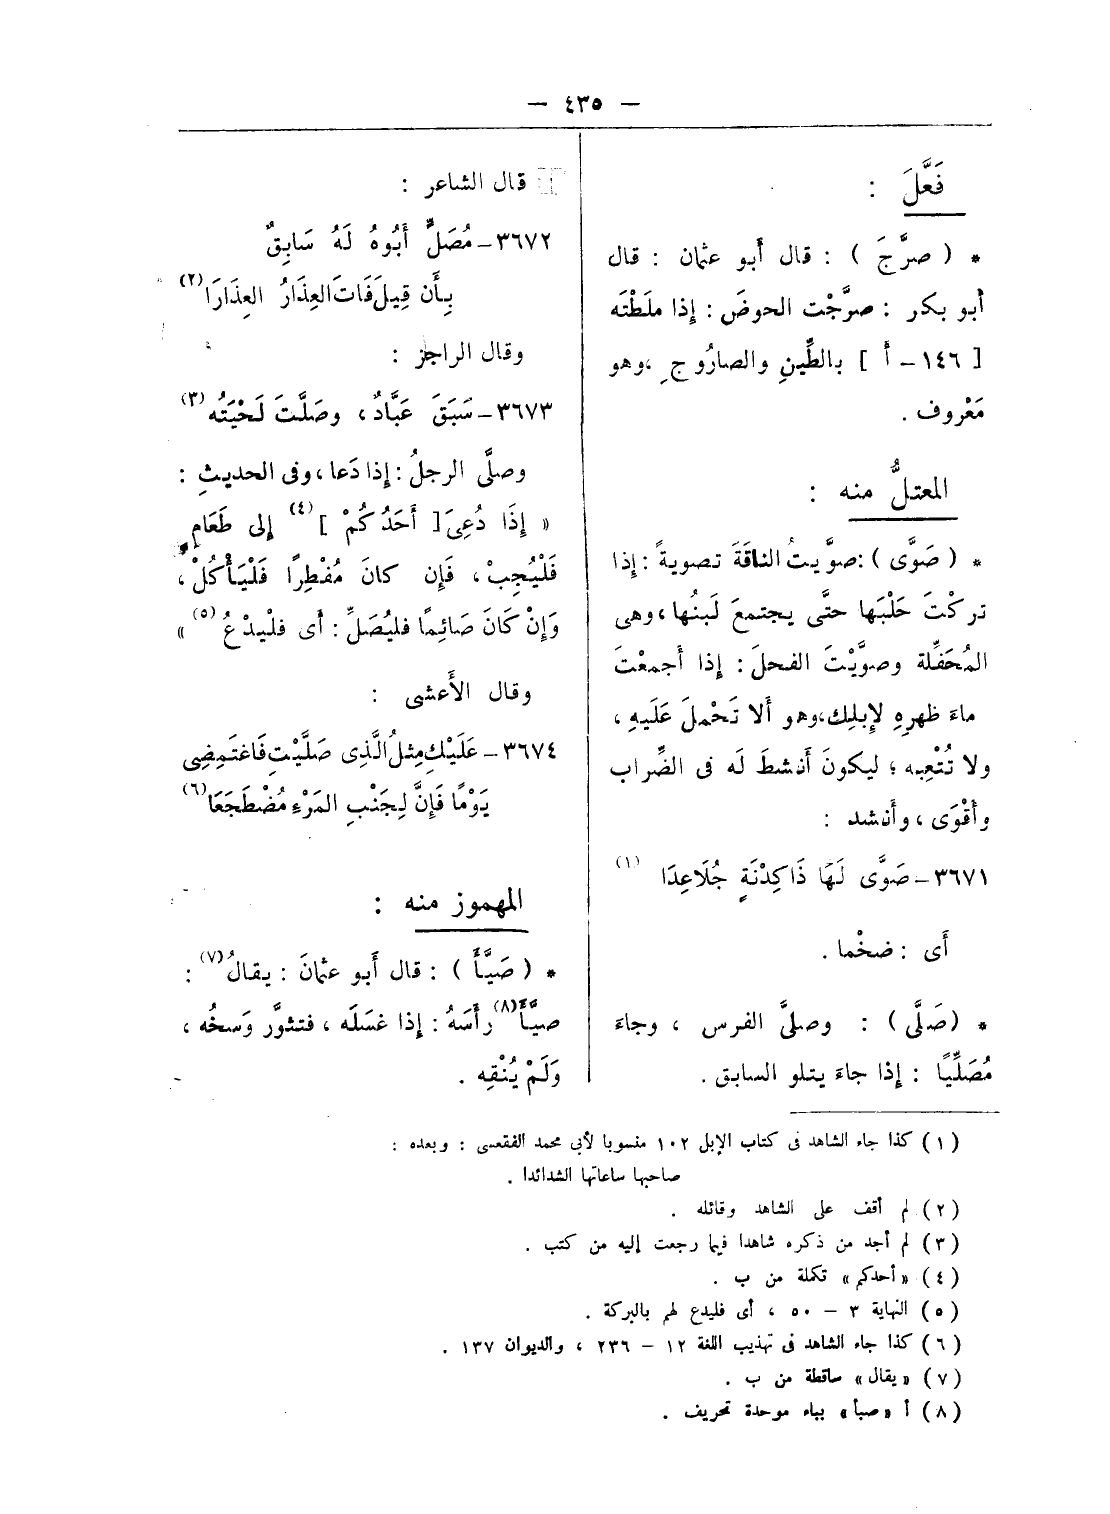 — ٤٣٥ —
فَعَّلَ :
* ( صرَّجَ ) : قال أَبو عثمان : قال
أبو بكر : صرَّجْت الحوضَ : إذا ملَطْتَه
[ ١٤٦ – أ ] بالطِّينِ والصارُوجِ ، وهو
مَعْروف .
المعتلُّ منه :
* ( صَوَّى ) : صوَّيتُ الناقَةَ تصويةً : إذا
تركْتَ حَلْبَها حتَّى يجتمعَ لَبنُها ، وهى
المُحَفِّلة وصوَّيْتَ الفحلَ : إذا أجمعْتَ
ماءَ ظهرِهِ لإبلِك ، وهو أَلا تَحْملَ عَلَيهِ ،
ولا تُتْعِبه ؛ ليكونَ أَنشطَ لَه فى الضِّراب
وأَقْوَى ، وأَنشد :
٣٦٧١ – صَوَّى لَهَا ذَا كِدْنَةٍ جُلَاعِدَا (١)
أَى : ضخْما .
* ( صَلَّى ) : وصلىَّ الفرس ، وجاءَ
مُصَلِّيًا : إذا جاءَ يتلو السابق .
قال الشاعر :
٣٦٧٢ – مُصَلٍّ أَبُوهُ لَهُ سَابِقٌ
بِأَن قِيلَ فَاتَ العِذَارُ العِذَارَا (٢)
وقال الراجز :
٣٦٧٣ – سَبَقَ عَبَّادٌ ، وصَلَّتَ لَحْيَتُه (٣)
وصلَّى الرجلُ : إذا دَعا ، وفى الحديثِ :
« إِذَا دُعِىَ [ أَحَدُكُمْ ] (٤) إلى طَعَامٍ
فَلْيُجِبْ ، فَإِن كانَ مُفْطِرًا فَلْيَأْكُلْ ،
وَإِنْ كَانَ صَائِمًا فليُصَلِّ : أَى فليدْعُ (٥) »
وقال الأَعشى :
٣٦٧٤ – عَلَيْكِ مِثلُ الَّذِى صَلَّيْتِ فَاغتَمِضِى
يَوْمًا فَإِنَّ لِجَنْبِ المَرْءِ مُضْطَجَعَا (٦)
المهموز منه :
* ( صَيَّأَ ) : قال أَبو عثمانَ : يقالُ (٧) :
صيَّأَ (٨) رأْسَهُ : إذا غسَلَه ، فتثوَّر وَسخُه ،
وَلَمْ يُنْقِه .
( ١ ) كذا جاء الشاهد فى كتاب الإبل ١٠٢ منسوبا لأبى محمد الفقعسى : وبعده :
صاحبها ساعاتها الشدائدا .
( ٢ ) لم أقف على الشاهد وقائله .
( ٣ ) لم أجد من ذكره شاهدا فيما رجعت إليه من كتب .
( ٤ ) « أحدكم » تكملة من ب .
( ٥ ) النهاية ٣ – ٥٠ ، أى فليدع لهم بالبركة .
( ٦ ) كذا جاء الشاهد فى تهذيب اللغة ١٢ – ٢٣٦ ، والديوان ١٣٧ .
( ٧ ) « يقال » ساقطة من ب .
( ٨ ) أ « صبأ » بباء موحدة تحريف .